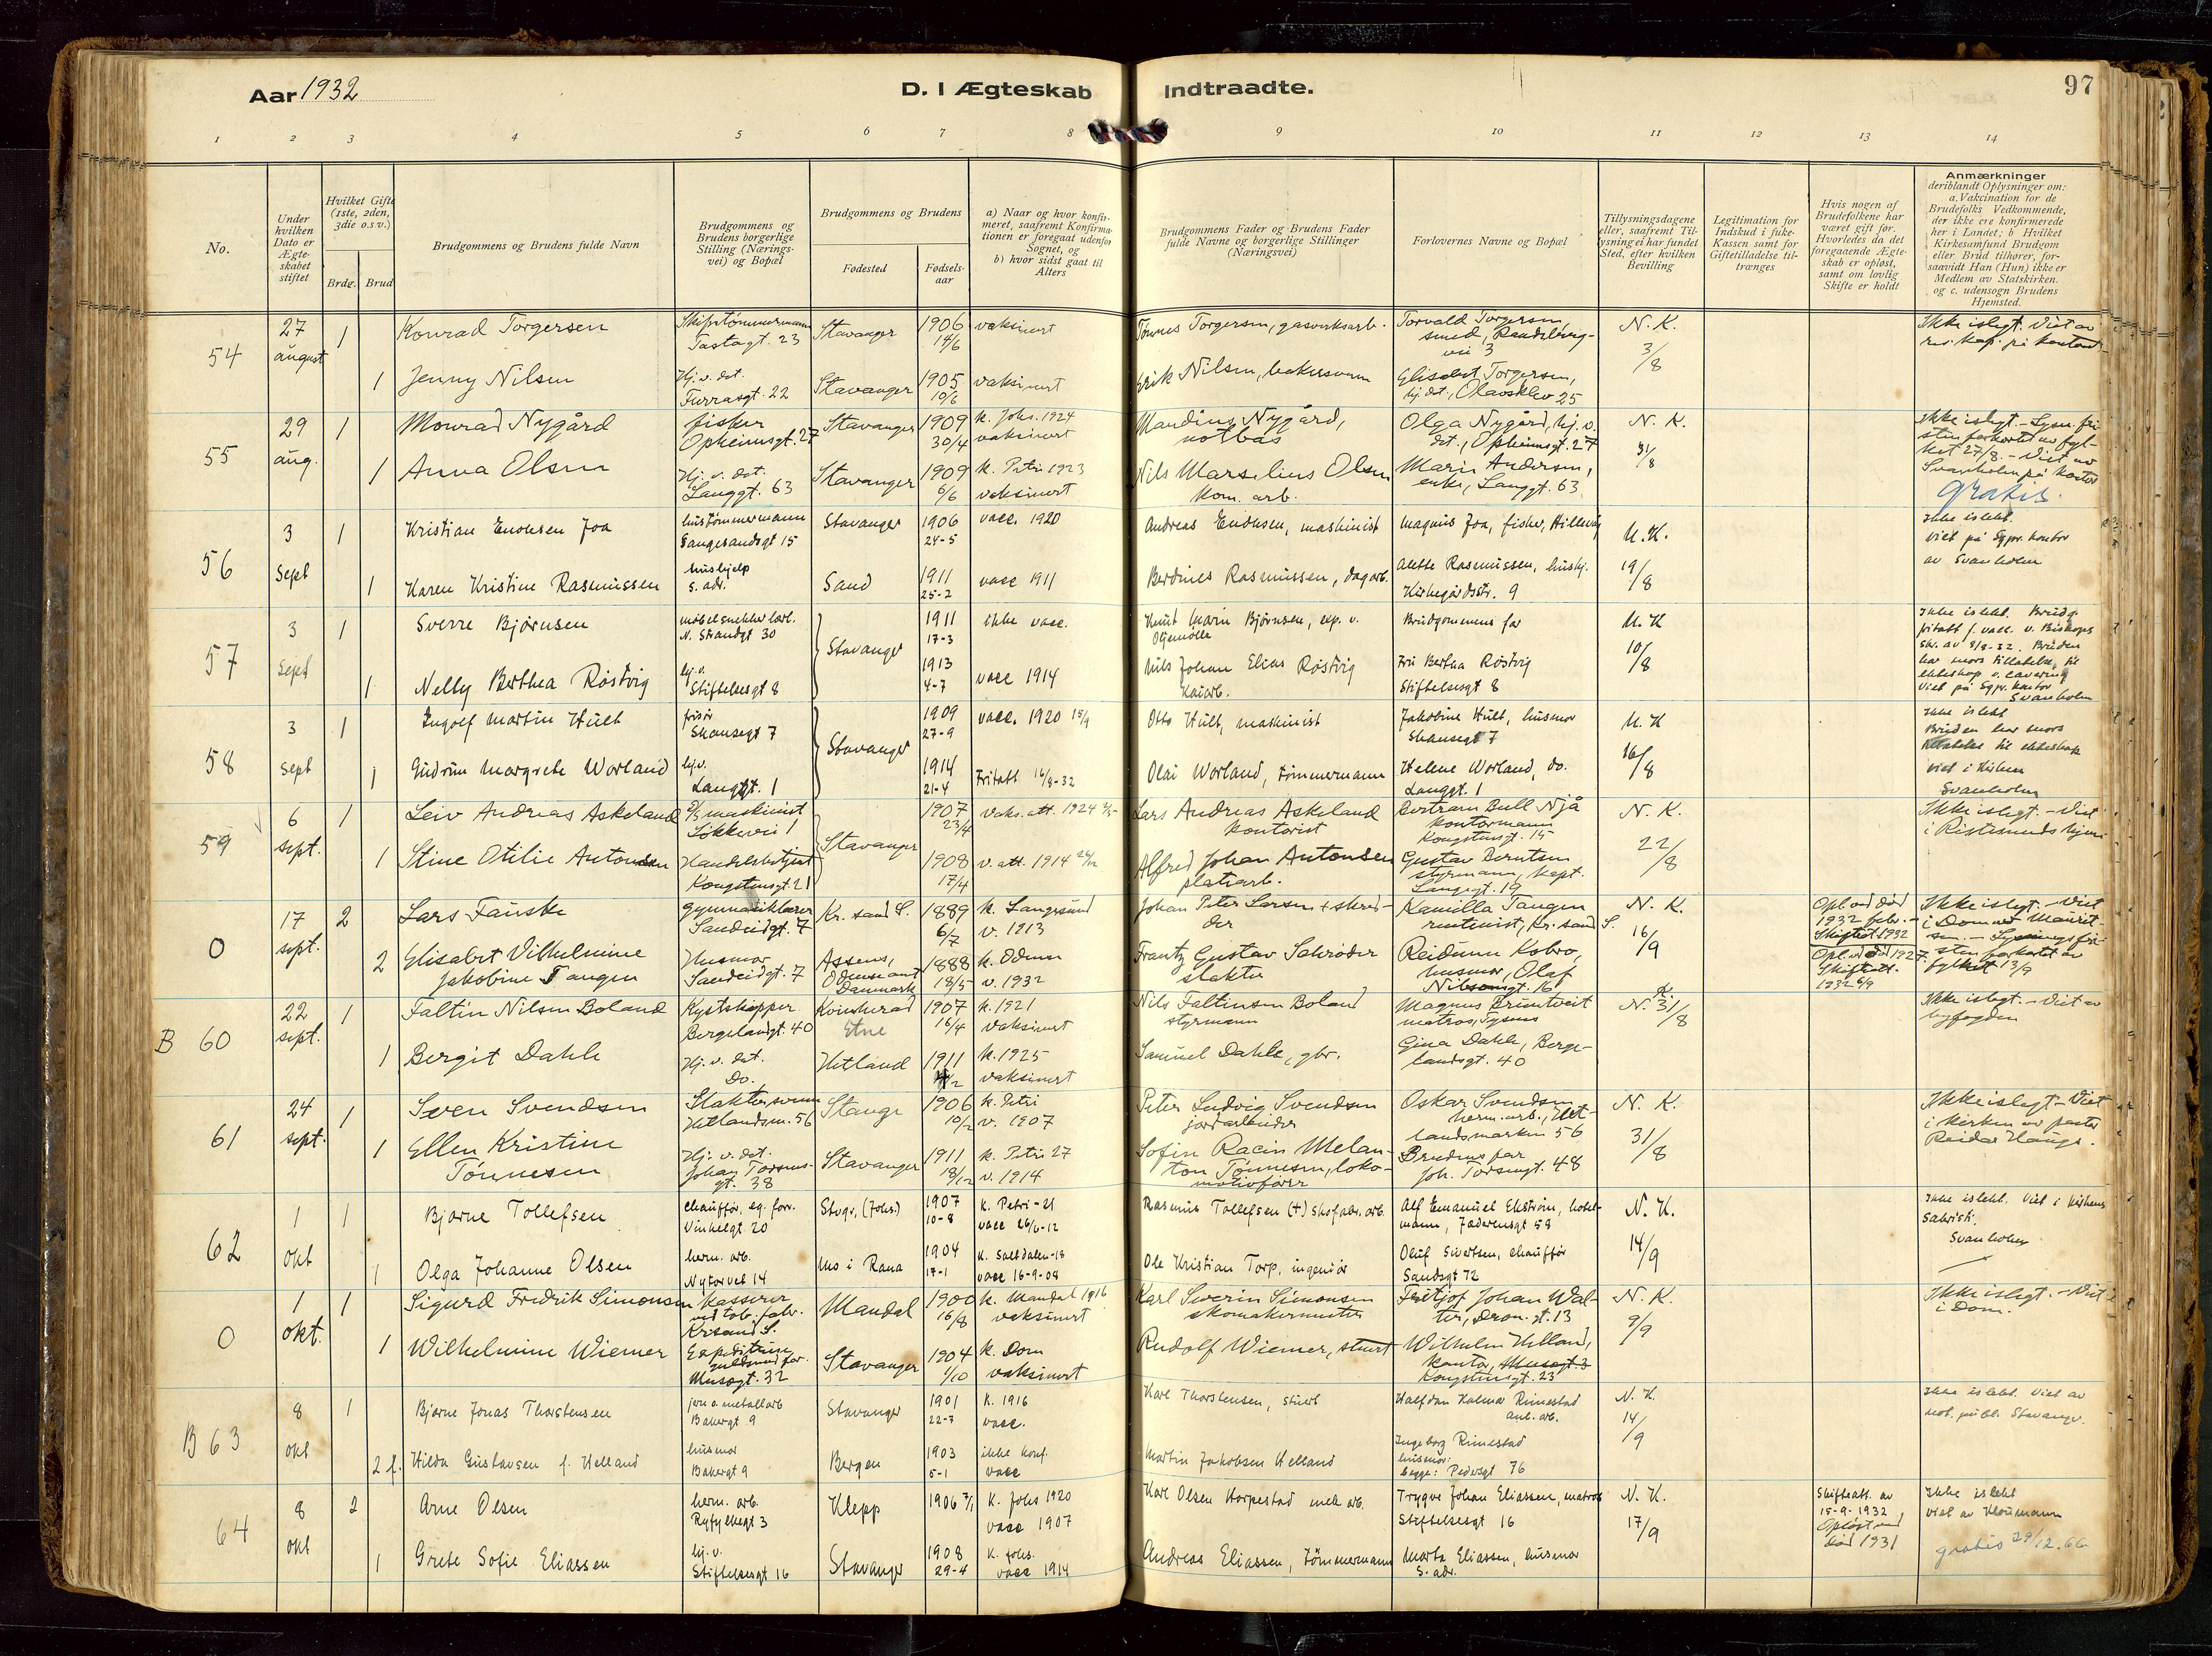 Aar 1932
D. I Ægteskab Indtraadte.
97
1 2 3 4 5 6 7 8 9 10 11 12 13 14
No.
Under hvilken Dato er Ægteskabet stiftet
Hvilket Gifte (1ste, 2den, 3die o.s.v.)
Brdg. Brud
Brudgommens og Brudens fulde Navn
Brudgommens og Brudens borgerlige Stilling (Næringsvei) og Bopæl
Brudgommens og Brudens
Fødested
Fødselsaar
a) Naar og hvor konfirmeret, saafremt Konfirmationen er foregaaet udenfor Sognet, og
b) hvor sidst gaat til Alters
Brudgommens Fader og Brudens Fader fulde Navne og borgerlige Stillinger (Næringsvei)
Forlovernes Navne og Bopæl
Tillysningsdagene eller, saafremt Tillysning ei har fundet Sted, efter hvilken Bevilling
Legitimation for Indskud i Enke-Kassen samt for Giftetilladelse tiltrænges
Hvis nogen af Brudefolkene har været gift før. Hvorledes da det foregaaende Ægteskab er opløst, samt om lovlig Skifte er holdt
Anmærkninger
deriblandt Oplysninger om: a. Vakcination for de Brudefolks Vedkommende, der ikke ere konfirmerede her i Landet; b Hvilket Kirkesamfund Brudgom eller Brud tilhører, forsaavidt Han (Hun) ikke er Medlem av Statskirken. og c. udensogn Brudens Hjemsted.
54 27 august 1 Konrad Torgersen Skipstømmermann Tastagt. 23 Stavanger 1906 14/6 vaksinert Tønnes Torgersen, gasverksarb. Torvald Torgersen, smed, N. K. 3/8 Ikke i slegt. Viet av
1 Jenny Nilsen Hj. v. det. Furrasgt. 22 Stavanger 1905 10/6 vaksinert Erik Nilsen, bakersvenn Elisabet Torgersen, hj. det., Olavsklev 25
55 29 aug. 1 Monrad Nygård fisker Opheimsgt. 27 Stavanger 1909 30/4 k. Johs. 1924 vaksinert Mandius Nygård, notbas Olga Nygård, hj. v. det., Opheimsgt. 27 N. K. 31/8 Ikke i slegt. - Lysn. fristen forkortet av fylket 27/8. - Viet av Svanholm på kontor
gratis.
1 Anna Olsen Hj. v. det. Langgt. 63 Stavanger 1909 6/6 k. Petri 1923 vaksinert Nils Marselius Olsen kom. arb. Marie Andersen, enke, Langgt. 63
56 3 Sept 1 Kristian Enoksen Joa hustømmermann Sangesandsgt 15 Stavanger 1906 24-5 vacc. 1920 Andreas Enoksen, maskinist Magnus Joa, fisker, Hillevåg N. K. 19/8 Ikke i slekt. viet på Sgpr. kontor av Svanholm
1 Karen Kristine Rasmussen hushjelp s. adr. Sand 1911 25-2 vacc 1911 Berdines Rasmussen, dagarb. Alette Rasmussen, hushj. Kirkegårdsstr. 9
57 3 Sept 1 Sverre Bjørnsen møbelsnekkerlærl. N. Strandgt 30 Stavanger 1911 17-3 ikke vacc. Knut Marin Bjørnsen, exp. v. Oljemølle Brudgommens far N. K 10/8 Ikke i slekt. Brudg. fritatt f. vacc. v. Biskops skr. av 8/8-32. Bruden har mors tillatelse til ekteskap viet på Sgpr. kontor Svanholm
1 Nelly Berthea Röstvig hj. v. Stiftelsesgt 8 1913 4-7 vacc 1914 Nils Johan Elias Röstvig kaiarb. Fru Bertha Röstvig Stiftelsesgt 8
58 3 Sept 1 Ingolf Martin Hult frisør Skansegt 7 Stavanger 1909 27-9 vacc. 1920 15/9 Otto Hult, maskinist Jakobine Hult, husmor Skansegt 7 N. K 16/8 Ikke i slekt Bruden har mors tillatelse til ekteskap viet i kirken Svanholm
1 Gudrun Margrete Worland hj. v. Langgt. 1 1914 21-4 Fritatt 16/8-32 Olai Worland, tömmermann Helene Worland, do. Langgt. 1
59 6 sept. 1 Leiv Andreas Askeland maskinist Løkkevei 1 Stavanger 1907 23/4 vaks. att. 1924 Lars Andreas Askeland kontorist Bertram Bull Njå kontormann Kongstensgt. 15 N. K. 22/8 Ikke i slegt. - Viet i
1 Stine Otilie Antonsen Handelsbetjent Kongstensgt. 21 1908 17/4 v. att. 1914 Alfred Johan Antonsen platearb. Gustav Berntsen styrmann, kapt. Langgt. 19
0 17 sept. 2 Lars Fauske gymnastiklærer Sandeidgt. 7 Kr. sand S. 1889 6/7 k. Langesund v. 1913 Johan Peter Larsen + skredder Kamilla Tangen rentenist, Kr. sand S. N. K. 16/9 Opl. ved død 1932 febr. - Skiftet 1932 Ikke i slegt. - Viet i Dom.
2 Elisabet Vilhelmine Jakobine Tangen Husmor Sandeidgt. 7 Assens, Odense amt Danmark 1888 18/5 k. Odense v. 1932 Frantz Gustav Schrøder slakter Reidunn Kobro, husmor, Olaf Nilssonsgt. 16 Opl. ved død 1927. Skiftet. 1932 fristen forkortet av fylket 13/9
B 60 22 sept. 1 Faltin Nilsen Boland Kystskipper Bergelandgt. 40 Kvinherad Etne 1907 16/4 k. 1921 vaksinert Nils Faltinsen Boland styrmann Magnus matros, Tysnes N. K. 31/8 Ikke i slegt. - Viet av byfogden
1 Bergit Dahle Hj. v. det. Do. Hetland 1911 k. 1925 vaksinert Samuel Dahle, gbr. Gina Dahle, Bergelandsgt. 40
61 24 sept. 1 Sven Svendsen Slaktersvenn Hetlandsm. 56 Stange 1906 10/2 k. Petri v. 1907 Peter Ludvig Svendsen jordarbeider Oskar Svendsen herm. arb., Hetlandsmarken 56 N. K. 31/8 Ikke i slegt - Viet i kirken av pastor Reidar Hauge.
1 Ellen Kristine Tönnesen Hj. v. det. Johan Torsensgt. 38 Stavanger 1911 18/12 k. Petri 27 v. 1914 Sofin Racin Melanton Tönnesen, lokomotivfører Brudens far Joh. Torsensgt. 48
62 1 okt 1 Bjarne Tollefsen chauffør, eg. forr. Vinkelgt 20 Stvgr. (Johs.) 1907 10-8 k. Petri-21 vacc 26/6-12 Rasmus Tollefsen (+) skofabr. arb. Alf Emanuel Ekström, hotelmann, Jæderensgt 58 N. K. 14/9 Ikke i slekt. Viet i kirkens Sakristi. Svanholm
1 Olga Johanne Olsen herm. arb. Nytorvet 14 Mo i Rana 1904 17-1 k. Saltdalen-18 vacc 16-9-08 Ole Kristian Torp, ingeniør Oluf Sivertsen, chauffør Sandsgt 72
0 1 okt. 1 Sigurd Fredrik Simonsen Kasserer ved tob. fabr. Krisand S. Mandal 1900 16/8 k. Mandal 1916 vaksinert Karl Severin Simonsen skomakermester Fritjof Johan Walter, Dron. gt. 13 N. K. 9/9 Ikke i slegt. - Viet i Dom.
1 Wilhelmine Wiemer Expeditrise gullsmedfor. Musegt. 32 Stavanger 1904 1/10 k. Dom vaksinert Rudolf Wiemer, stuert Wilhelm Helland, kontor, Musegt. 3 Kongstensgt. 23
B 63 8 okt 1 Bjarne Jonas Thorstensen jern o. metallarb Bakergt 9 Stavanger 1901 22-7 k. 1916 vacc. Karl Thorstensen, stuert Halfdan Kalmar Rimestad anl. arb. N. K. 14/9 Ikke i slekt. Viet av not. publ. Stavanger.
2 f. Hilda Gustavsen f. Helland husmor Bakergt 9 Bergen 1903 5-1 ikke konf. vacc Martin Jakobsen Helland Ingeborg Rimestad husmor. begge: Pedersgt 76
64 8 okt 2 Arne Olsen herm. arb. Ryfylkegt 3 Klepp 1906 7/1 k. Johs 1920 vacc 1907 Karl Olsen Horpestad mek arb. Trygve Johan Eliassen, matros Stiftelsesgt 16 N. K. 17/9 Skifteatt. av 15-9-1932 Opløst ved død 1931 Ikke i slekt viet av Kloumann
gratis 29/12.66
1 Grete Sofie Eliassen hj. v. Stiftelsesgt 16 Stavanger 1908 29-4 k. Johs. vacc 1914 Andreas Eliassen, tömmermann Marta Eliassen, husmor S. adr.